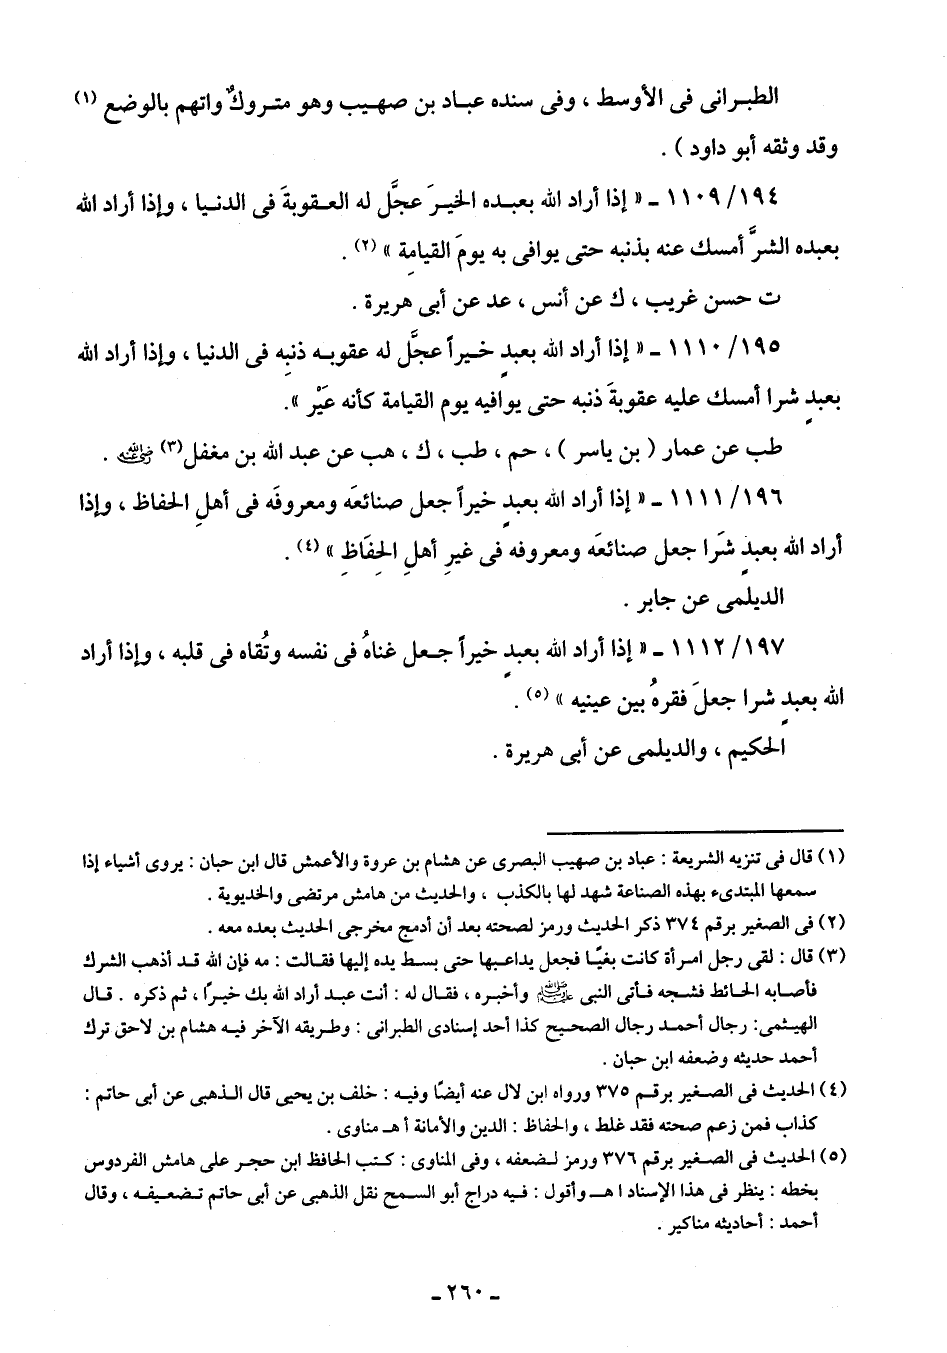 الطبرانى فى الأوسط ، وفى سنده عباد بن صهيب وهو متروكٌ واتهم بالوضع (١)
وقد وثقه أبو داود ) .
١١٠٩/١٩٤ ـ « إذا أراد الله بعبده الخيرَ عجَّل له العقوبةَ فى الدنيا ، وإذا أراد الله
بعبده الشرَّ أمسك عنه بذنبه حتى يوافى به يومَ القيامةِ » (٢) .
ت حسن غريب ، ك عن أنس ، عد عن أبى هريرة .
١١١٠/١٩٥ ـ « إذا أراد الله بعبدٍ خيراً عجَّل له عقوبه ذنبِه فى الدنيا ، وإذا أراد الله
بعبدٍ شرا أمسك عليه عقوبةَ ذنبه حتى يوافيه يوم القيامة كأنه عَيْر ».
طب عن عمار ( بن ياسر ) ، حم ، طب ، ك ، هب عن عبد الله بن مغفل (٣) رضي الله عنه .
١١١١/١٩٦ ـ « إذا أراد الله بعبدٍ خيراً جعل صنائعَه ومعروفَه فى أهلِ الحفاظ ، وإذا
أراد الله بعبدٍ شَرا جعل صنائعَه ومعروفه فى غيرِ أهلِ الحِفَاظِ » (٤) .
الديلمى عن جابر .
١١١٢/١٩٧ ـ « إذا أراد الله بعبدٍ خيراً جعل غناهُ فى نفسه وتُقاه فى قلبه ، وإذا أراد
الله بعبدٍ شرا جعلَ فقرهُ بين عينيه » (٥) .
الحكيم ، والديلمى عن أبى هريرة .
(١) قال فى تنزيه الشريعة : عباد بن صهيب البصرى عن هشام بن عروة والأعمش قال ابن حبان : يروى أشياء إذا
سمعها المبتدىء بهذه الصناعة شهد لها بالكذب ، والحديث من هامش مرتضى والخديوية .
(٢) فى الصغير برقم ٣٧٤ ذكر الحديث ورمز لصحته بعد أن أدمج مخرجى الحديث بعده معه .
(٣) قال : لقى رجل امرأة كانت بغيًا فجعل يداعبها حتى بسط يده إليها فقالت : مه فإن الله قد أذهب الشرك
فأصابه الحائط فشجه فأتى النبى ﷺ وأخبره ، فقال له : أنت عبد أراد الله بك خيرًا ، ثم ذكره . قال
الهيثمى: رجال أحمد رجال الصحيح كذا أحد إسنادى الطبرانى : وطريقه الآخر فيه هشام بن لاحق ترك
أحمد حديثه وضعفه ابن حبان .
(٤) الحديث فى الصغير برقم ٣٧٥ ورواه ابن لال عنه أيضًا وفيه : خلف بن يحيى قال الذهبى عن أبى حاتم :
كذاب فمن زعم صحته فقد غلط ، والحفاظ : الدين والأمانة أ هـ مناوى .
(٥) الحديث فى الصغير برقم ٣٧٦ ورمز لضعفه ، وفى المناوى : كتب الحافظ ابن حجر على هامش الفردوس
بخطه : ينظر فى هذا الإسناد ا هـ وأقول : فيه دراج أبو السمح نقل الذهبى عن أبى حاتم تضعيفه ، وقال
أحمد : أحاديثه مناكير .
ـ ٢٦٠ ـ